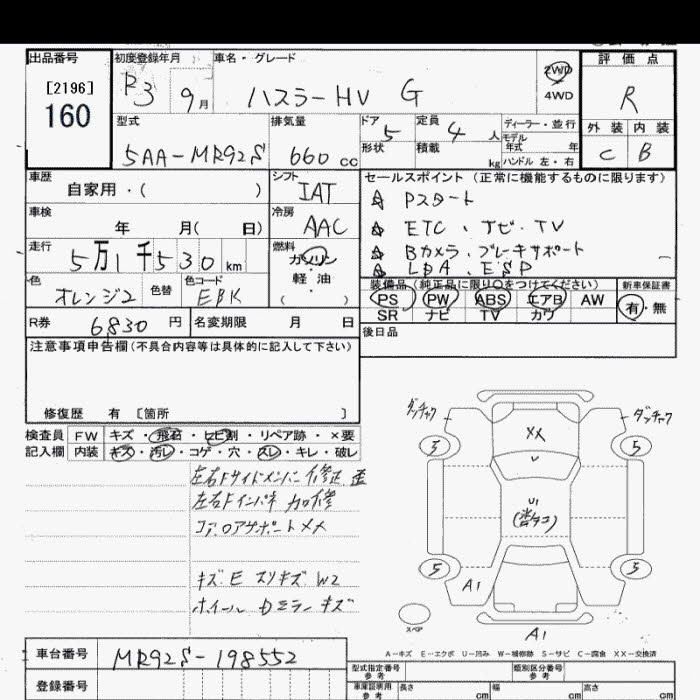 出品番号 初度登録年月 車名・グレード 評価点
[2196]
160
R3 9月 ハスラーHV G
2WD
4WD
R
型式 排気量 ドア 定員 ディーラー・並行 外装 内装
5AA-MR92S 660cc 5 4人
モデル年式 年
形状 積載 kg ハンドル 左・右
C B
車歴 シフト セールスポイント (正常に機能するものに限ります)
自家用・( ) IAT
☆ Pスタート
車検 冷房
年 月( 日) AAC
☆ ETC、ナビ・TV
走行 燃料
5万1千530km ガソリン・軽油 ( )
☆ Bカメラ、ブレーキサポート
☆ LDA、ESP
色 色替 色コード
オレンジ2 EBK
装備品 (純正品に限り○をつけてください) 新車保証書
PS PW ABS エアB AW 有・無
SR ナビ TV カワ
R券 6830円 名変期限 月 日
後日品
注意事項申告欄(不具合内容等は具体的に記入して下さい)
修復歴 有 [箇所 ]
検査員 FW キズ・飛石・ヒビ割・リペア跡・×要
記入欄 内装 キズ・汚レ・コゲ・穴・スレ・キレ・破レ
左右Fサイドメンバー修正 歪
左右Fインパネ 加修
コアロアサポートXX
キズE スリキズ W2
ホイール カミラー キズ
ダッチャク ダッチャク
XX
5 5
U1
5 5
A1
スペア
A1
A-キズ E-エクボ U-凹み W-補修跡 S-サビ C-腐食 XX-交換済
車台番号 MR92S-198552
登録番号
型式指定番号 参考 類別区分番号 参考
車庫証明用 参考 長さ cm 幅 cm 高さ cm